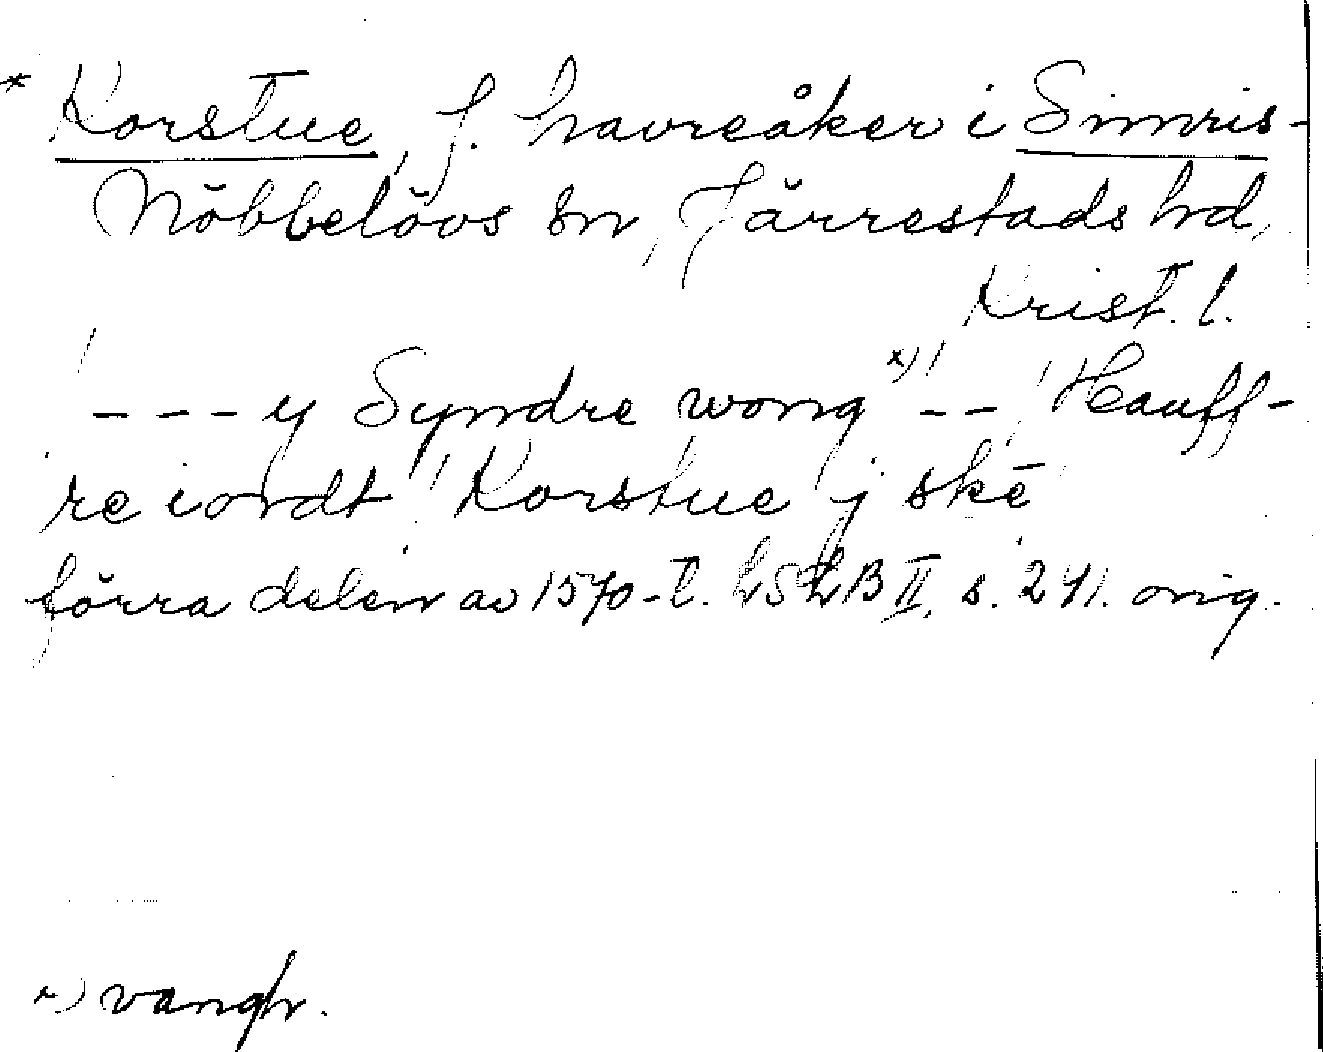 * Korstue, f. havreåker i Simris-
Nöbbelövs sn, Järrestads hd,
Krist. l.
/ - - - y Syndre wong x) / - - / Hauff-
re iordt / Korstue / j ske
förra delen av 1570-t. LSLB II, s. 241. orig.
x) vangh.